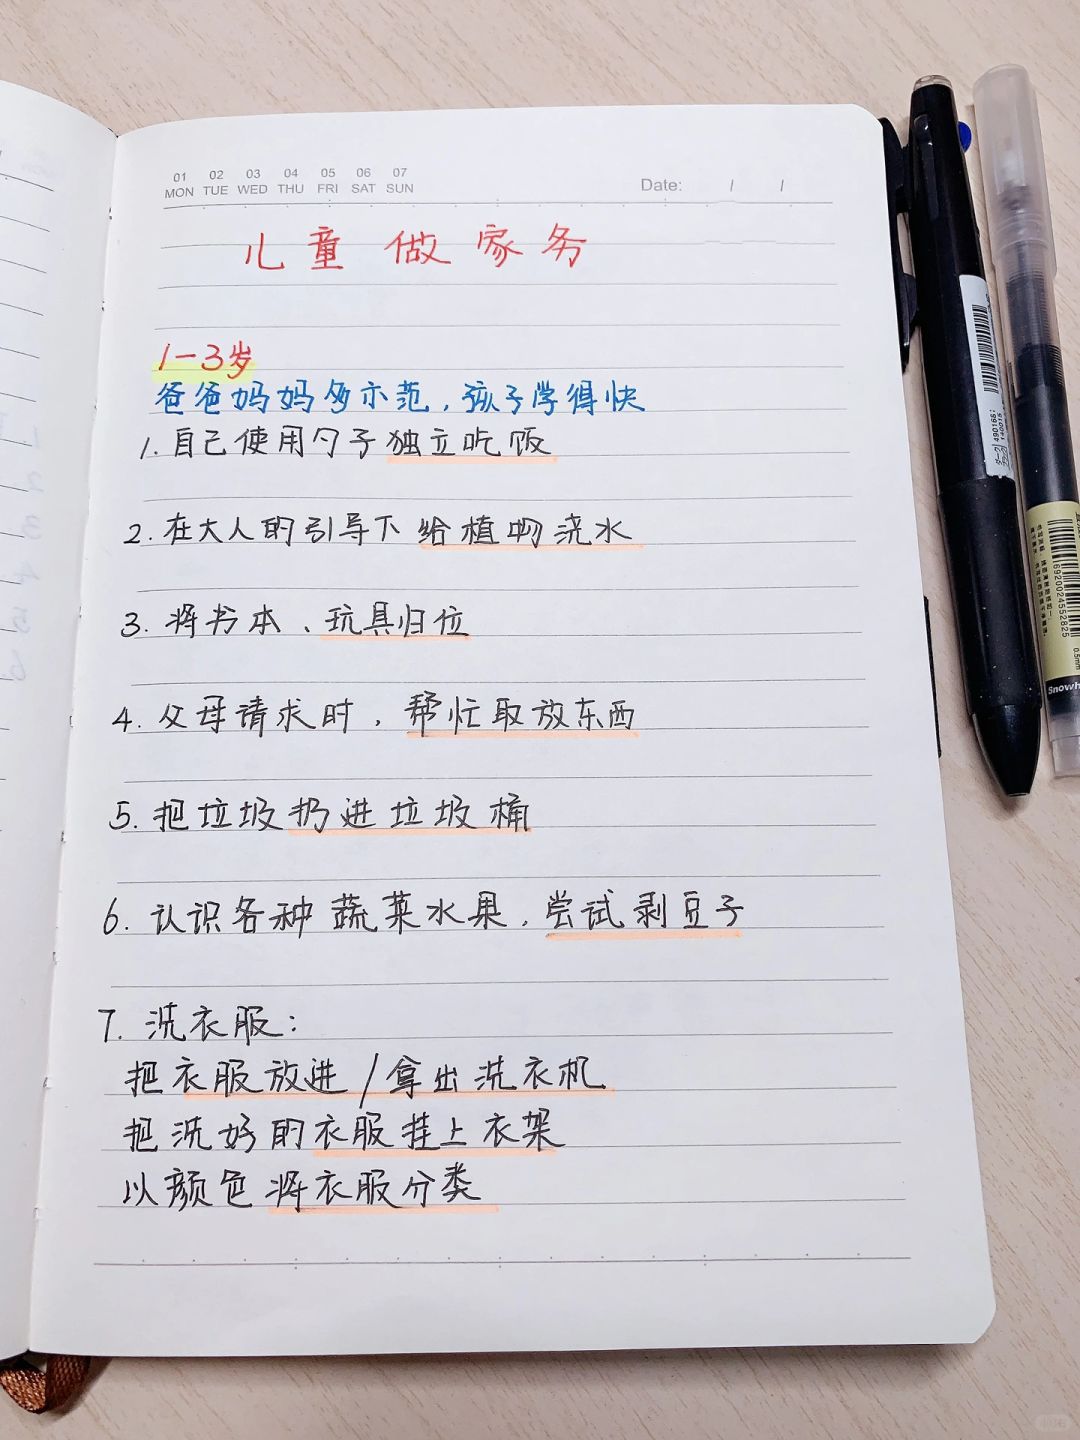 01 02 03 04 05 06 07
MON TUE WED THU FRI SAT SUN
Date: / /
儿童做家务
1-3岁
爸爸妈妈多示范，孩子学得快
1. 自己使用勺子独立吃饭
2. 在大人的引导下给植物浇水
3. 将书本、玩具归位
4. 父母请求时，帮忙取放东西
5. 把垃圾扔进垃圾桶
6. 认识各种蔬菜水果，尝试剥豆子
7. 洗衣服：
把衣服放进/拿出洗衣机
把洗好的衣服挂上衣架
以颜色将衣服分类
6920024552825
0.5mm